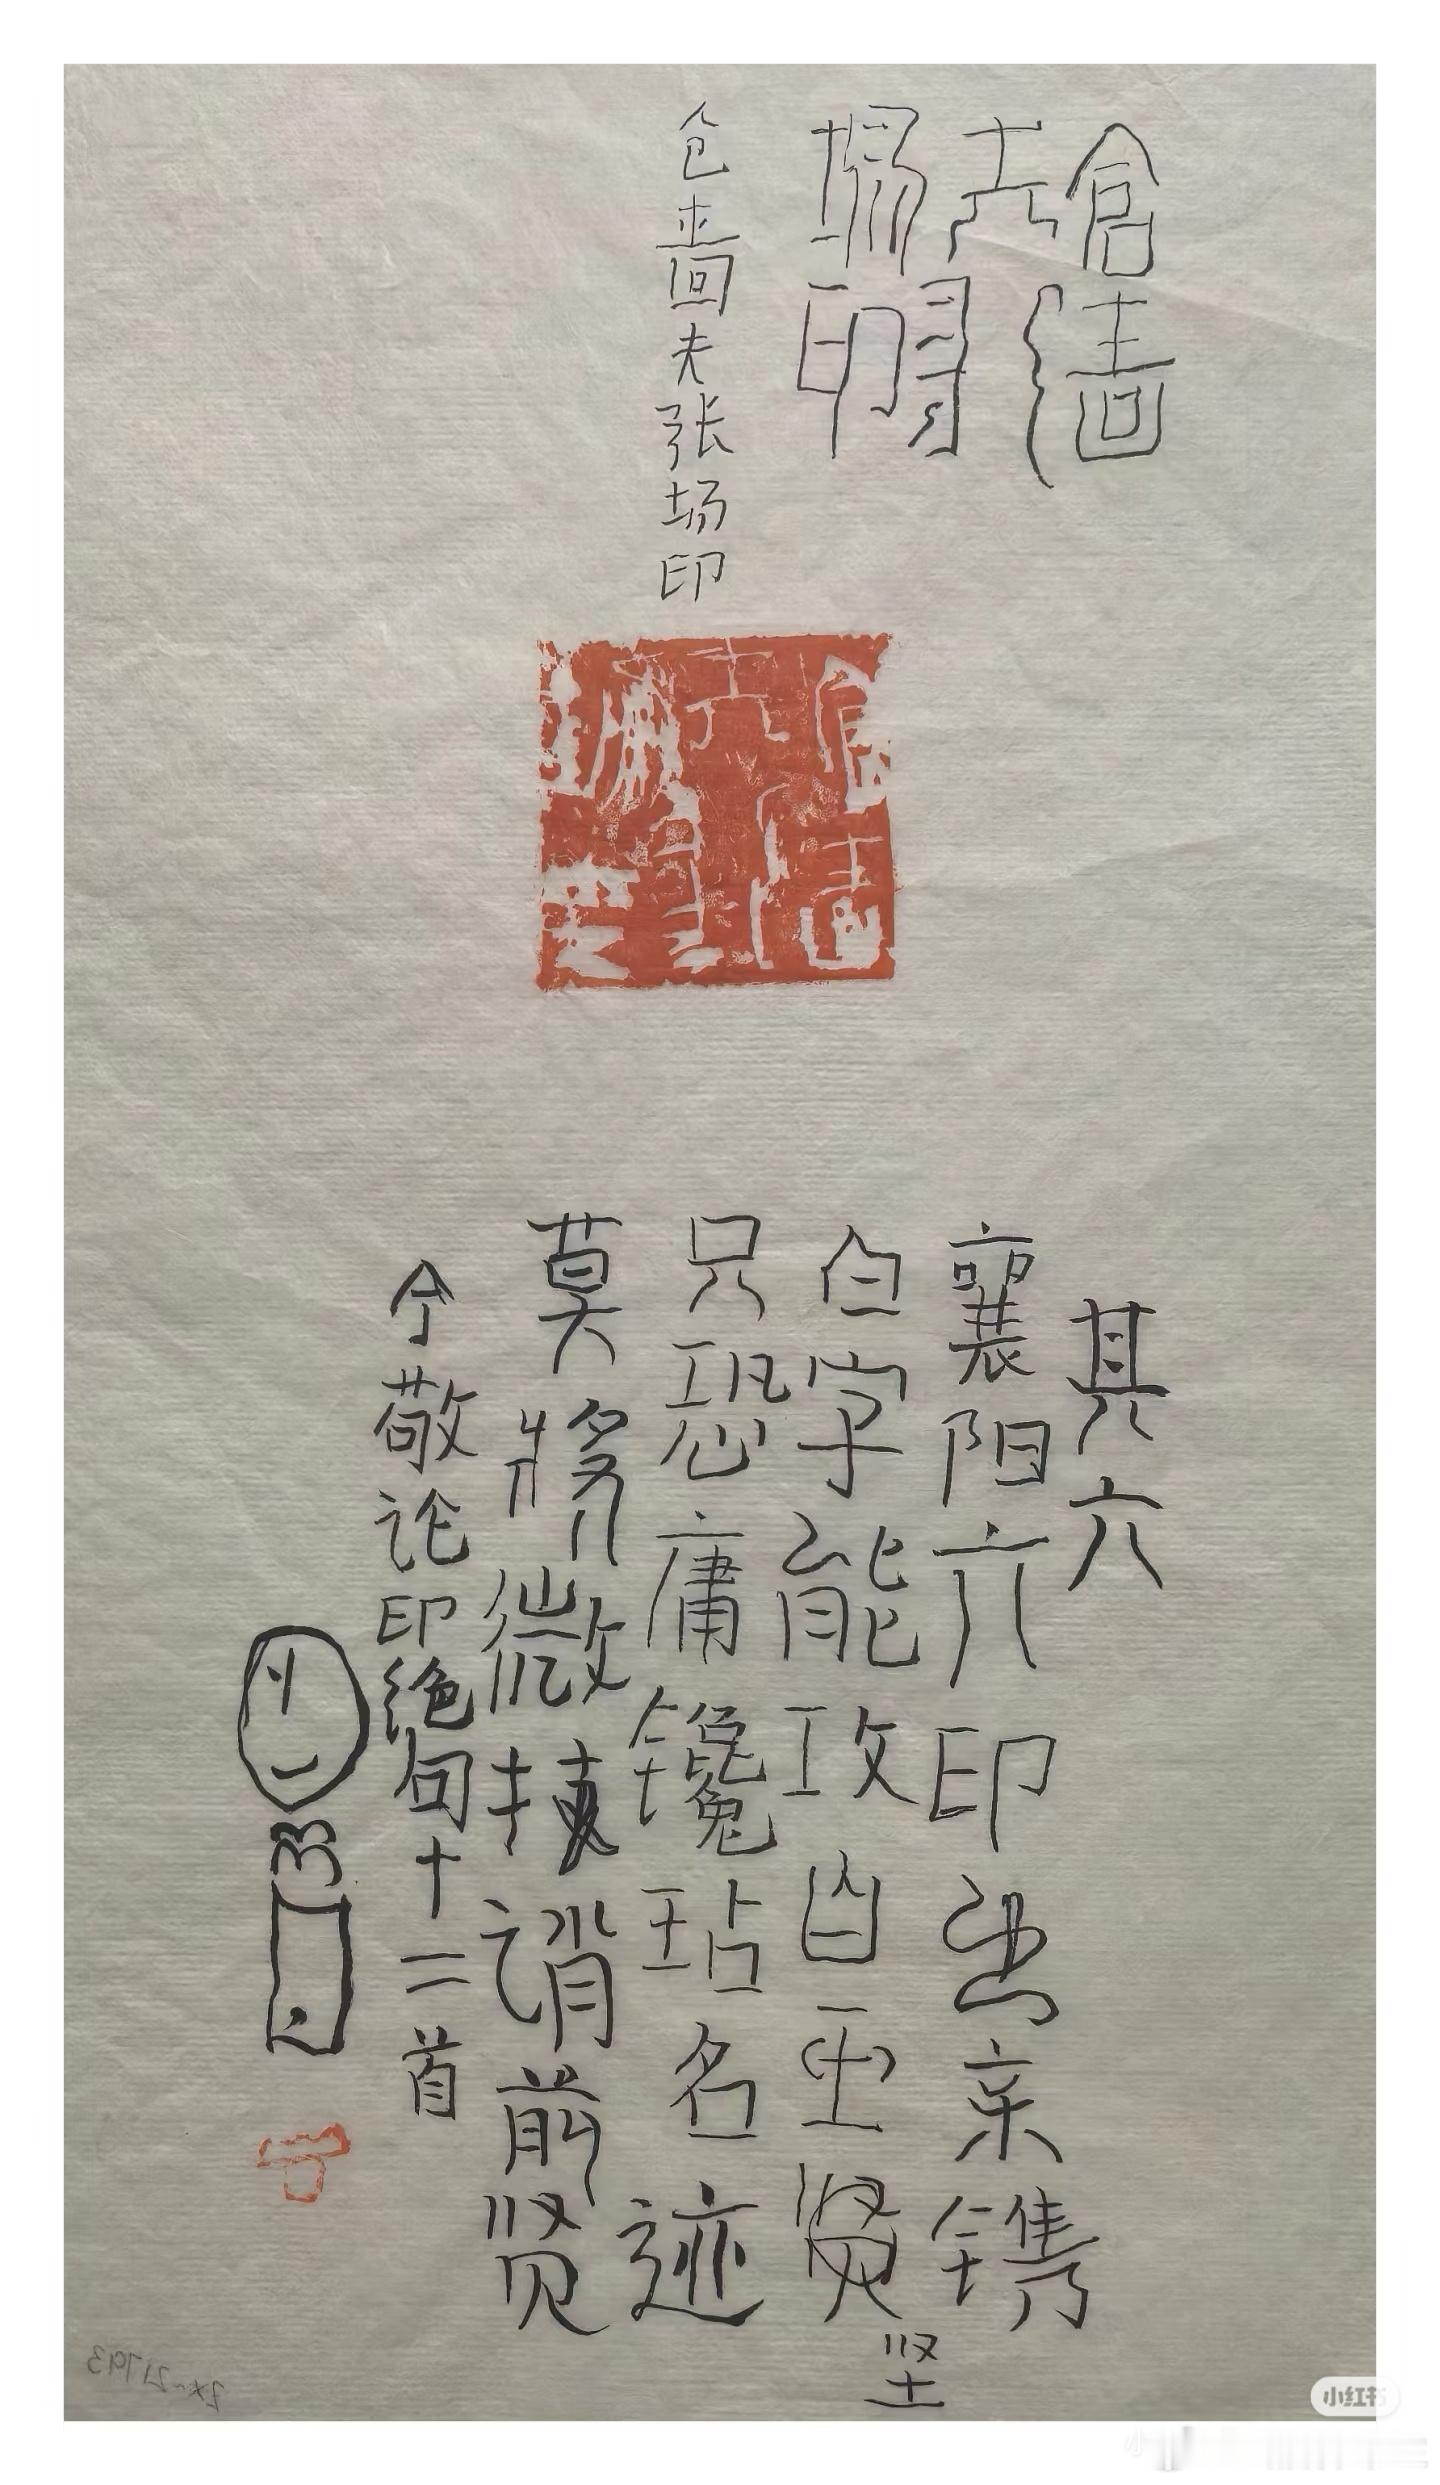 倉嗇
夫張
場印
仓啬夫张场印
其六
襄阳六印出亲镌
白字能攻自至坚
只恐庸镵玷名迹
莫将微技诮前贤
丁敬论印绝句十二首
小红书